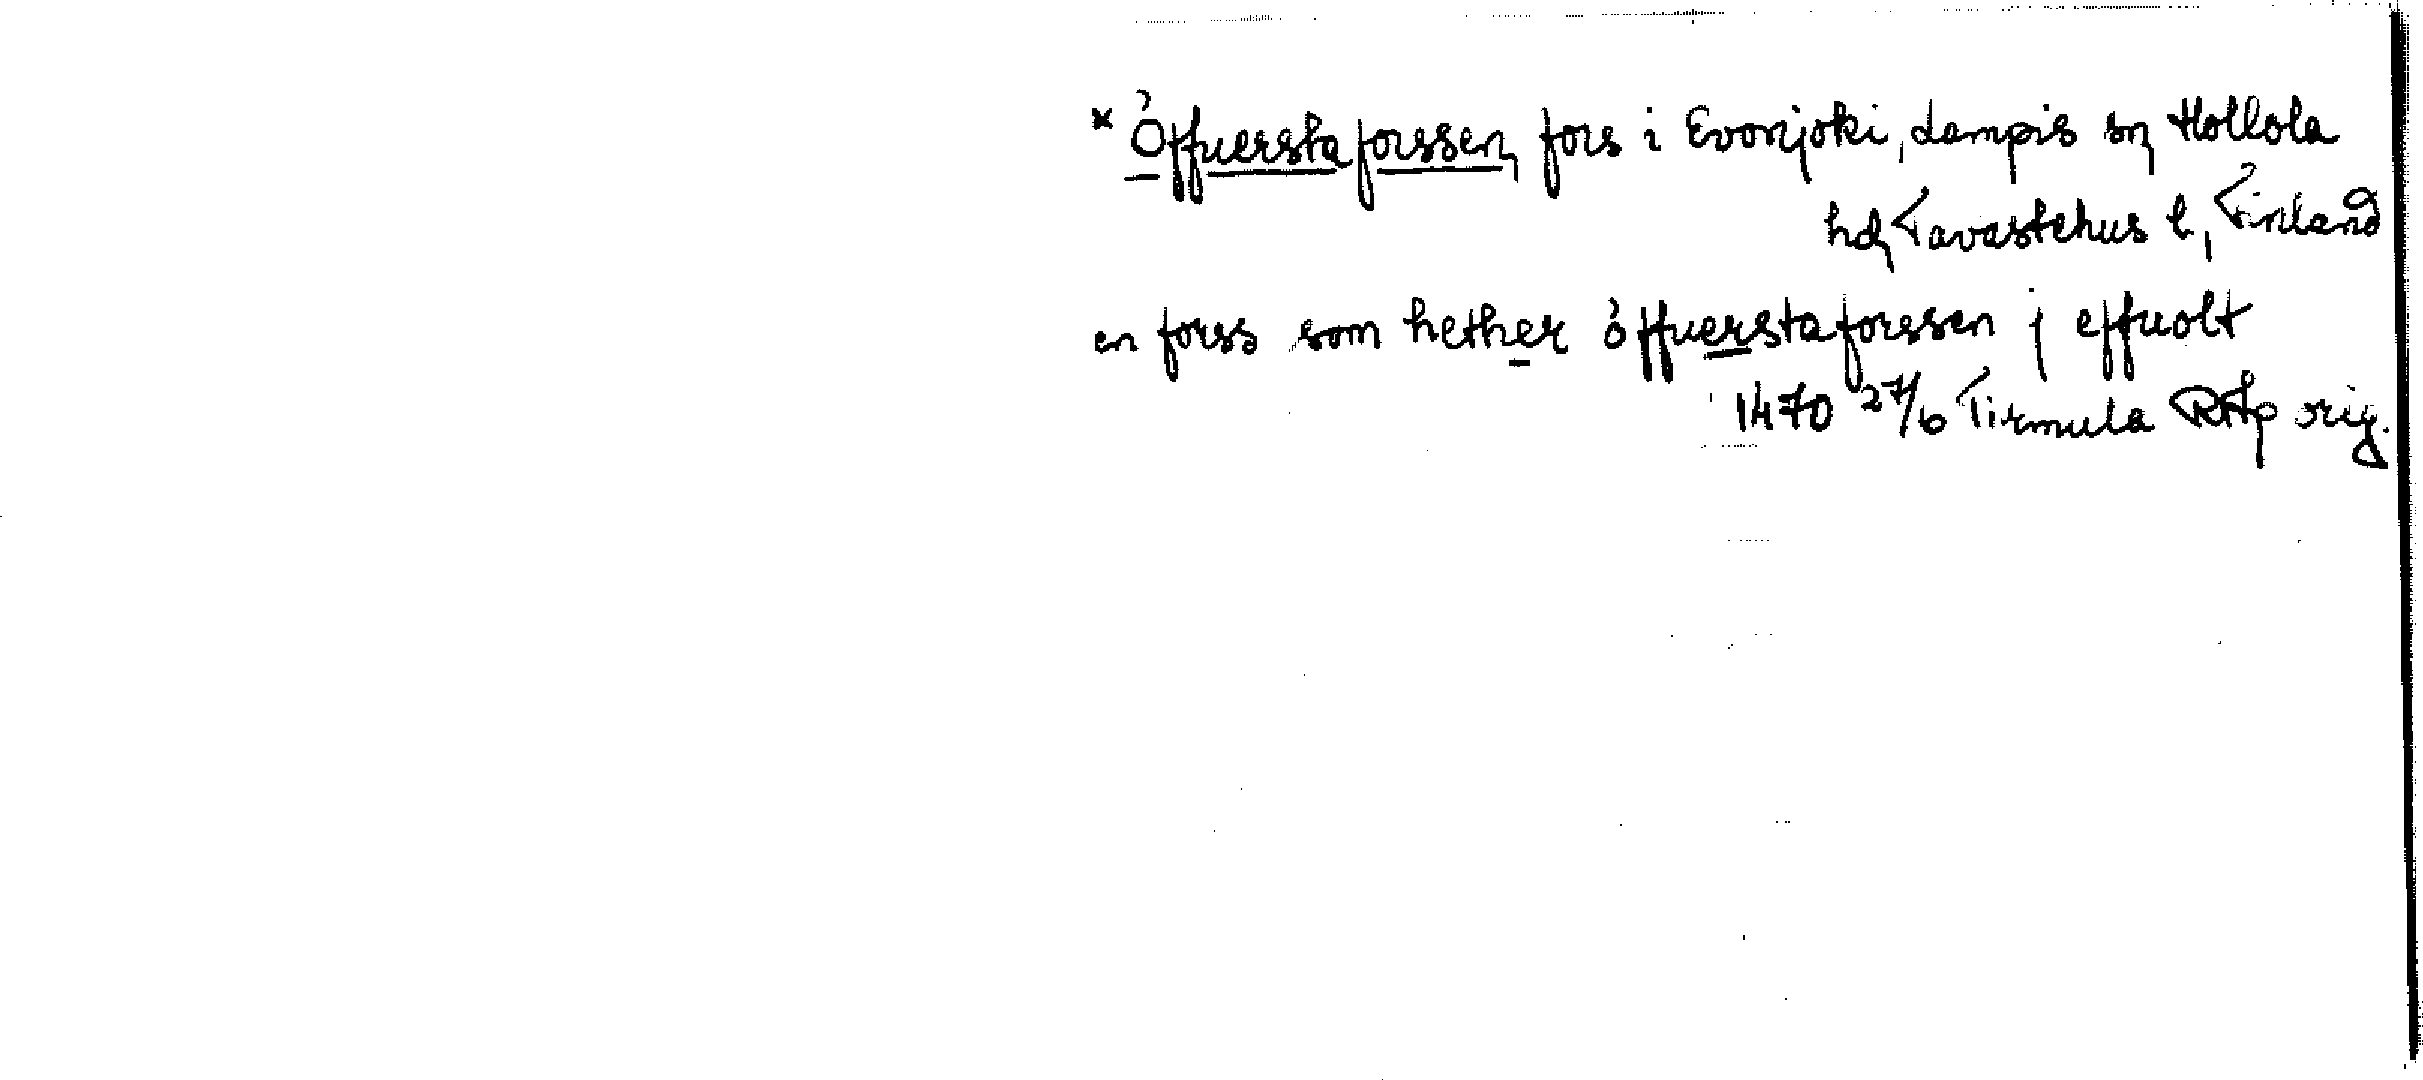 * Öffuersta forssen, fors i Evonjoki, Lampis sn, Hollola
hd, Tavastehus l, Finland
en forss som hether öffuerstaforssen j effuolt
1470 27/6 Tirmula RAp orig.